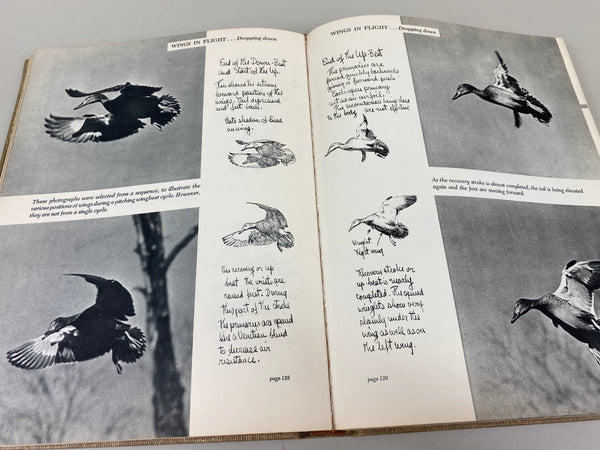 WINGS IN FLIGHT . . . Dropping down
End of the Down-Beat
and Start of the Up.
This shows the extreme
forward position of the
wings, tail depressed
and feet back.
Note shadow of head
on wing.
These photographs were selected from a sequence, to illustrate the
various positions of wings during a pitching wingbeat cycle. However,
they are not from a single cycle.
On recovery or up
beat the wrists are
raised first. During
this part of the stroke
the primaries are opened
like a Venetian blind
to decrease air
resistance.
page 128
WINGS IN FLIGHT . . . Dropping down
End of the Up-Beat
The primaries are
forced quickly backwards
giving a forward push.
Each open primary
act as an airfoil.
The secondaries being close
to the body are not effective.
As the recovery stroke is almost completed, the tail is being elevated
again and the feet are moving forward.
Wright
right wing
Recovery stroke or
up-beat is nearly
completed. The opened
wright's show very
plainly under the
wing as well as on
the left wing.
page 129